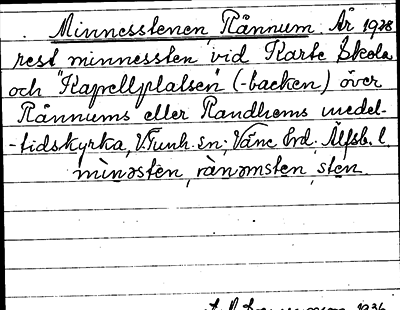 Minnesstenen, Rännum. År 1928
rest minnessten vid Karte Skola
och "Kapellplatsen" (-backen) över
Rännums eller Randhems medel-
-tidskyrka, V.Tunh. sn; Väne hrd. Älfsb. l.
minəsten, ränəmsten, sten.
1936